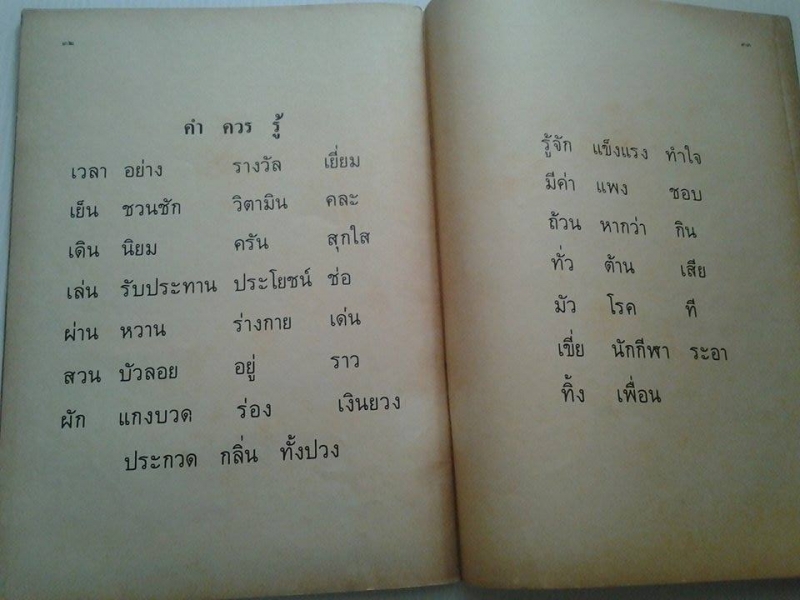 ๓๒
คำ ควร รู้
เวลา อย่าง รางวัล เยี่ยม
เย็น ชวนชัก วิตามิน คละ
เดิน นิยม ครัน สุกใส
เล่น รับประทาน ประโยชน์ ช่อ
ผ่าน หวาน ร่างกาย เด่น
สวน บัวลอย อยู่ ราว
ผัก แกงบวด ร่อง เงินยวง
ประกวด กลิ่น ทั้งปวง
๓๓
รู้จัก แข็งแรง ทำใจ
มีค่า แพง ชอบ
ถ้วน หากว่า กิน
ทั่ว ต้าน เสีย
มัว โรค ที
เขี่ย นักกีฬา ระอา
ทิ้ง เพื่อน